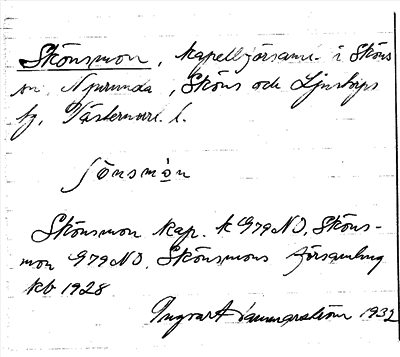 Skönsmon, kapellförsaml. i Sköns
sn, Njurunda, Sköns och Ljustorps
tg, Västernorrl. l.
ʃönsmòn
Skönsmon kap. k G79NO, Sköns-
mon G79NO, Skönsmons församling
kb 1928
Ingvart 1932